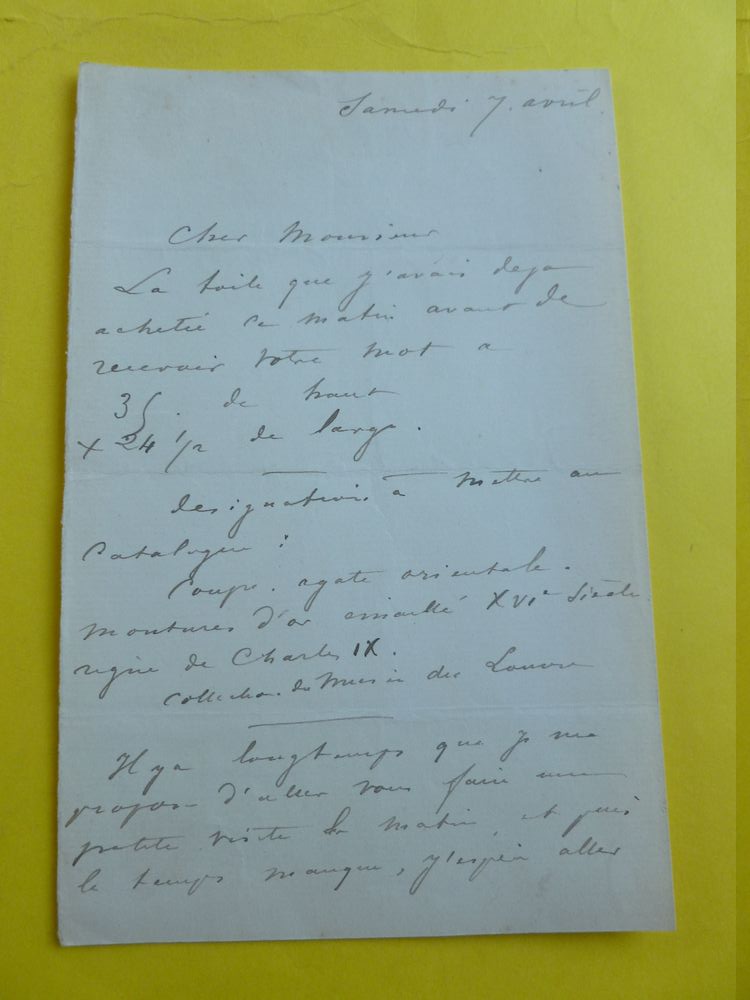 Samedi 7. avril.
Cher Monsieur
La toile que j'avais deja
achetée ce matin avant de
recevoir votre mot a
35. de haut
x 24 1/2 de large.
designation à mettre au
Catalogue :
Coupe. agate orientale.
montures d'or émaillé XVIe Siècle
règne de Charles IX.
Collection du Musée du Louvre
Il y a longtemps que je me
propose d'aller vous faire une
petite visite le matin, et puis
le temps manque, j'espère aller